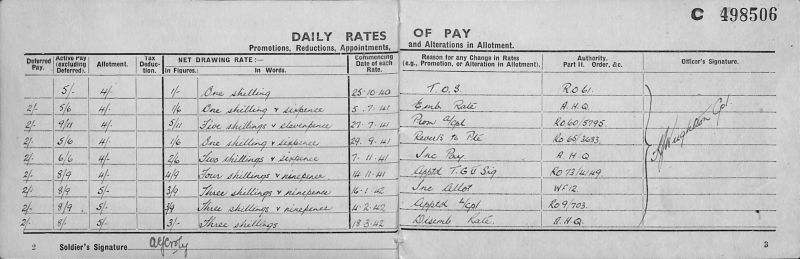 C 498506
DAILY RATES OF PAY
Promotions, Reductions, Appointments, and Alterations in Allotment.
Deferred Pay. Active Pay (excluding Deferred). Allotment. Tax Deduc- tion. NET DRAWING RATE:— In Figures. In Words. Commencing Date of each Rate. Reason for any Change in Rates (e.g., Promotion, or Alteration in Allotment). Authority. Part II. Order, &c. Officer's Signature.
5/- 4/- 1/- One shilling 25.10.40 T.O.S. RO 61.
2/- 5/6 4/- 1/6 One shilling & sixpence 5.7.41 Emb Rate A.H.Q.
2/- 9/11 4/- 5/11 Five shillings & elevenpence 27.7.41 Prom a/Cpl RO 60/5795
2/- 5/6 4/- 1/6 One shilling & sixpence 29.9.41 Reverts to Pte RO 65/3683
2/- 6/6 4/- 2/6 Two shillings & sixpence 7.11.41 Inc Pay A.H.Q
2/- 8/9 4/- 4/9 Four shillings & ninepence 14.11.41 Apptd T.G V Sig RO 73/4149
2/- 8/9 5/- 3/9 Three shillings & ninepence 16.1.42 Inc Allot WF12.
2/- 8/9 5/- 3/9 Three shillings & ninepence 4.2.42 Apptd L/Cpl RO 9/703.
2/- 8/- 5/- 3/- Three shillings 18.3.42 Disemb Rate. A.H.Q.
2 Soldier's Signature 3